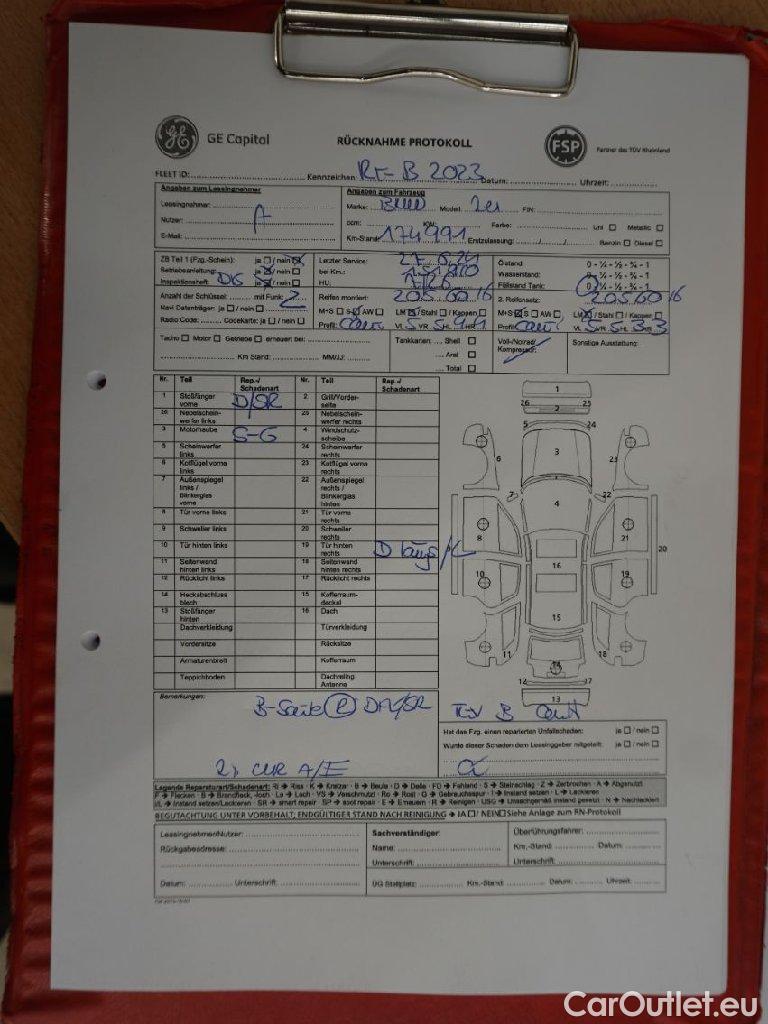 GE Capital
RÜCKNAHME PROTOKOLL
FSP
Partner des TÜV Rheinland
FLEET ID: Kennzeichen RT-B 2023 Datum: Uhrzeit:
Angaben zum Leasingnehmer
Leasingnehmer:
Nutzer: A
E-Mail:
Angaben zum Fahrzeug
Marke: BMW Modell: 2er FIN:
ccm: KW: Farbe: Uni Metallic
Km-Stand: 174991 Erstzulassung: Benzin Diesel
ZB Teil 1 (Fzg.-Schein): ja / nein
Betriebsanleitung: ja / nein
Inspektionsheft: ja / nein
Letzter Service:
bei Km.:
HU:
Ölstand 0 - ¼ - ½ - ¾ - 1
Wasserstand: 0 - ¼ - ½ - ¾ - 1
Füllstand Tank: 0 - ¼ - ½ - ¾ - 1
Anzahl der Schlüssel: mit Funk: 2
Navi Datenträger: ja / nein
Radio Code: CodeKarte: ja / nein
Reifen montiert: 205 60 16
M+S S AW LM / Stahl / Kappen
Profil:
2. Reifensatz: 205 60 16
M+S S AW LM / Stahl / Kappen
Profil:
Tacho Motor Getriebe erneuert bei:
Km Stand: MM/JJ:
Tankkarten: Shell
Aral
Total
Voll-/Notrad/
Kompressor
Sonstige Ausstattung:
Nr. Teil Rep.-/ Schadenart Nr. Teil Rep.-/ Schadenart
1 Stoßfänger vorne D/SR 2 Grill/Vorderseite
26 Nebelscheinwerfer links 25 Nebelscheinwerfer rechts
3 Motorhaube S-G 4 Windschutzscheibe
5 Scheinwerfer links 24 Scheinwerfer rechts
6 Kotflügel vorne links 23 Kotflügel vorne rechts
7 Außenspiegel links / Blinkerglas vorne 22 Außenspiegel rechts / Blinkerglas hinten
8 Tür vorne links 21 Tür vorne rechts
9 Schweller links 20 Schweller rechts
10 Tür hinten links 19 Tür hinten rechts D längs/L
11 Seitenwand hinten links 18 Seitenwand hinten rechts
12 Rücklicht links 17 Rücklicht rechts
14 Heckabschlussblech 15 Kofferraumdeckel
13 Stoßfänger hinten 16 Dach
Dachverkleidung Türverkleidung
Vordersitze Rücksitze
Armaturenbrett Kofferraum
Teppichboden Dachreling Antenne
1
26 25
2
5 24
6 3 23
7 22
4
8 21
20
10 16 19
15
11 18
14
12 17
13
Bemerkungen:
Hat das Fzg. einen reparierten Unfallschaden: ja / nein
Wurde dieser Schaden dem Leasinggeber mitgeteilt: ja / nein
Legende Reparaturart/Schadenart: RI → Riss - K → Kratzer - B → Beule - D → Delle - FD → Fehlend - S → Steinschlag - Z → Zerbrochen - A → Abgenutzt
F → Flecken - B → Brandfleck, -loch - Lo → Loch - VS → Verschmutzt - Ro → Rost - G → Gebrauchsspur - I → Instand setzen - L → Lackieren
I/L → Instand setzen/Lackieren - SR → smart repair - SP → spot repair - E → Erneuern - R → Reinigen - USG → Unsachgemäß instand gesetzt - N → Nachlackiert
BEGUTACHTUNG UNTER VORBEHALT; ENDGÜLTIGER STAND NACH REINIGUNG → JA / NEIN Siehe Anlage zum RN-Protokoll
Leasingnehmer/Nutzer:
Rückgabeadresse:
Datum: Unterschrift:
Sachverständiger:
Name:
Unterschrift:
Überführungsfahrer:
Km.-Stand: Datum:
Unterschrift:
ÜG Stellplatz: Km.-Stand: Datum: Uhrzeit:
CarOutlet.eu